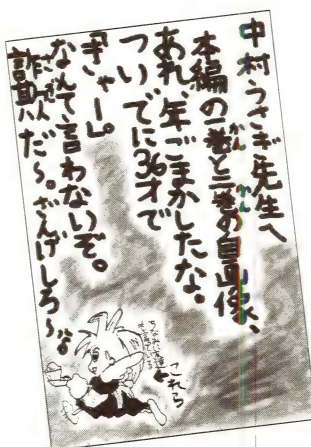 中村うさぎ先生へ
本編の一巻と三巻の自画像、
あれ、年ごまかしたな。
ついでに36才で
『きゃー』。
なんて言わないぞ。
詐欺だ〜。ざんげしろ〜。
これら